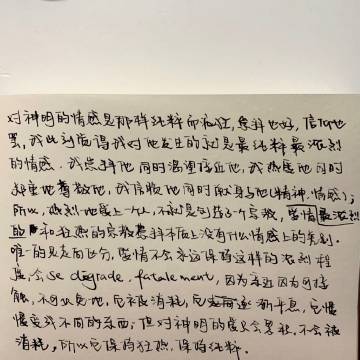 对神明的情感是那样纯粹而疯狂,崇拜也好,信仰也
罢,我此刻觉得我对他产生的就是最纯粹最浓烈
的情感。我崇拜他同时渴望接近他,我热爱他同时
郑重地尊敬他,我信服他同时献身与他(精神,情感);
所以,感到地爱上一个人,不就是创造了一个宗教,爱情最浓烈
的和狂热的宗教崇拜本质上没有什么情感上的差别。
唯一的是走向不分,爱情不会永远保持这样的浓烈程
度,会se dégrade, fatalement,因为亲近因为可接
触,不可避免地,它被消耗,它逐渐平息,它慢
慢变成不同的东西,但对神明的爱只会累积,不会被
消耗,所以它保持狂热,保持纯粹。